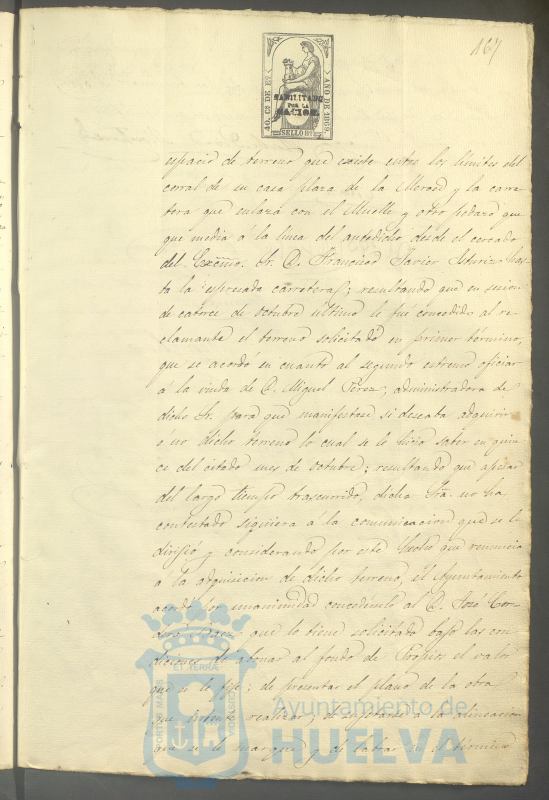 167
40. Cs. DE Eo.
AÑO DE 1869.
HABILITADO
POR LA
NACION.
SELLO 9º
espacio de terreno que existe entre los límites del
corral de su casa plaza de la Merced y la carre
tera que enlaza con el Muelle y otro pedazo que
que media á la linea del antedicho desde el cercado
del Excmo. Sr. D. Francisco Javier has
ta la espresada carretera; resultando que en sesion
de catorce de Octubre último le fué concedido al re
clamante el terreno solicitado en primer término,
que se acordó en cuanto al segundo estremo oficiar
á la viuda de D. Miguel Perez, administradora de
dicho Sr. para que manifestase si deseaba adquirir
o no dicho terreno lo cual se le hizo saber en quin
ce del citado mes de Octubre; resultando que apesar
del largo tiempo trascurrido, dicha Sra. no ha
contestado siquiera á la comunicacion que se le
dirifió y considerando por este hecho que renuncia
á la adquisicion de dicho terreno, el Ayuntamiento
acordó por unanimidad concedérselo al D. José
que lo tiene solicitado bajo las con
diciones de abonar al fondo de Propios el valor
que se le fije; de presentar el plano de la obra
que intente realizar; de sujetarse a la alineacion
que se le marque y de labrar en el término
PORTUS MARIS
ET TERRÆ
CUSTODIA
Ayuntamiento de
HUELVA